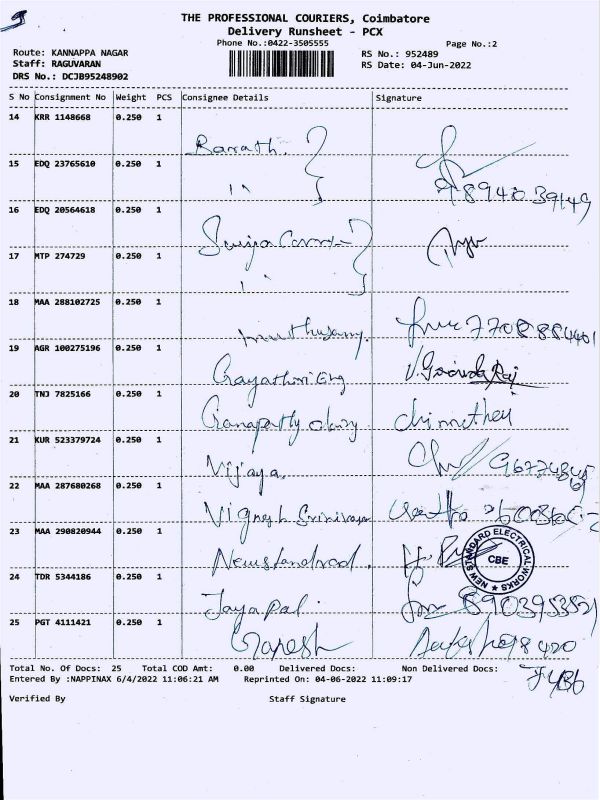 THE PROFESSIONAL COURIERS, Coimbatore
Delivery Runsheet - PCX
Phone No.:0422-3505555
Page No.:2
Route: KANNAPPA NAGAR
RS No.: 952489
Staff: RAGUVARAN
RS Date: 04-Jun-2022
DRS No.: DCJB95248902
S No Consignment No Weight PCS Consignee Details Signature
14 KRR 1148668 0.250 1
Barath.
15 EDQ 23765610 0.250 1
8940 39149
16 EDQ 20564618 0.250 1
17 MTP 274729 0.250 1
18 MAA 288102725 0.250 1
muthusamy. 7708884401
19 AGR 100275196 0.250 1
Gayathiri Eng V. Govinda Raj
20 TNJ 7825166 0.250 1
Ganapathy
21 KUR 523379724 0.250 1
Vijaya.
22 MAA 287680268 0.250 1
Vignesh Srinivasan
23 MAA 290820944 0.250 1
NEW STANDARD ELECTRICAL WORKS ★ CBE
24 TDR 5344186 0.250 1
Jayapal.
25 PGT 4111421 0.250 1
Ganesh
Total No. Of Docs: 25 Total COD Amt: 0.00 Delivered Docs: Non Delivered Docs:
Entered By :NAPPINAX 6/4/2022 11:06:21 AM Reprinted On: 04-06-2022 11:09:17
Verified By Staff Signature